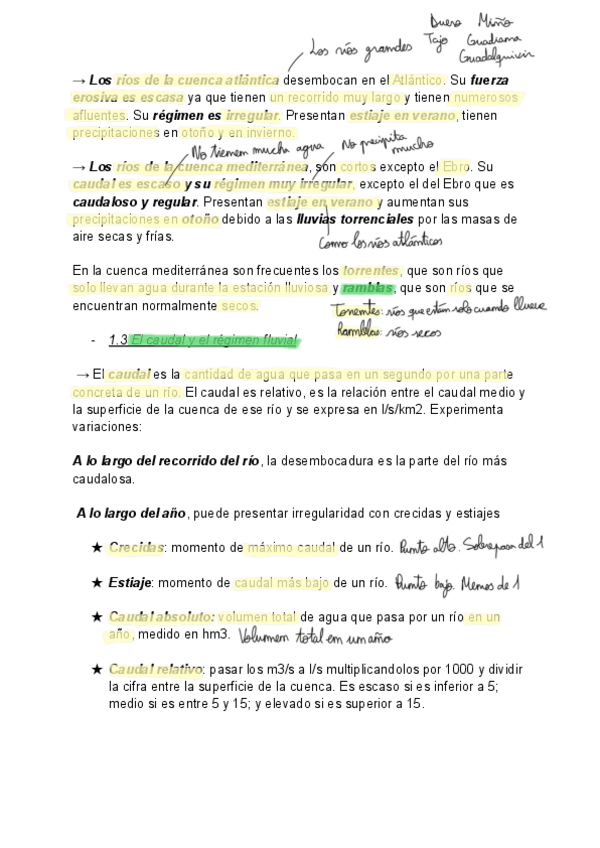 Duero Miño
Los ríos grandes Tajo Guadiana
Guadalquivir
→ Los ríos de la cuenca atlántica desembocan en el Atlántico. Su fuerza
erosiva es escasa ya que tienen un recorrido muy largo y tienen numerosos
afluentes. Su régimen es irregular. Presentan estiaje en verano, tienen
precipitaciones en otoño y en invierno.
No tienem mucha agua No precipita
mucho
→ Los ríos de la cuenca mediterránea, són cortos excepto el Ebro. Su
caudal es escaso y su régimen muy irregular, excepto el del Ebro que es
caudaloso y regular. Presentan estiaje en verano y aumentan sus
precipitaciones en otoño debido a las lluvias torrenciales por las masas de
aire secas y frías.
Como los ríos atlánticos
En la cuenca mediterránea son frecuentes los torrentes, que son ríos que
solo llevan agua durante la estación lluviosa y ramblas, que son ríos que se
encuentran normalmente secos.
Torrentes: ríos que están solo cuando llueve
Ramblas: ríos secos
- 1.3 El caudal y el régimen fluvial
→ El caudal es la cantidad de agua que pasa en un segundo por una parte
concreta de un río. El caudal es relativo, es la relación entre el caudal medio y
la superficie de la cuenca de ese río y se expresa en l/s/km2. Experimenta
variaciones:
A lo largo del recorrido del río, la desembocadura es la parte del río más
caudalosa.
A lo largo del año, puede presentar irregularidad con crecidas y estiajes
★ Crecidas: momento de máximo caudal de un río. Punto alto. Sobrepasa del 1
★ Estiaje: momento de caudal más bajo de un río. Punto bajo. Menos de 1
★ Caudal absoluto: volumen total de agua que pasa por un río en un
año, medido en hm3. Volumen total em um año
★ Caudal relativo: pasar los m3/s a l/s multiplicandolos por 1000 y dividir
la cifra entre la superficie de la cuenca. Es escaso si es inferior a 5;
medio si es entre 5 y 15; y elevado si es superior a 15.